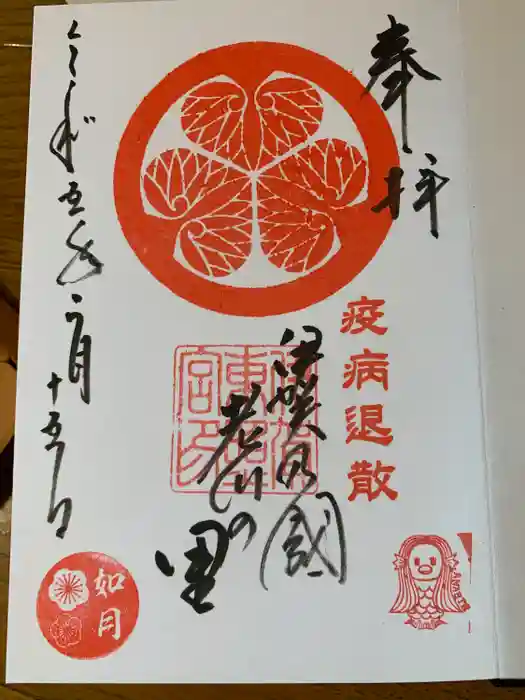 奉拝
疫病退散
伊賀乃國
老川の里
令和五年二月十五日
如月
AMABIE